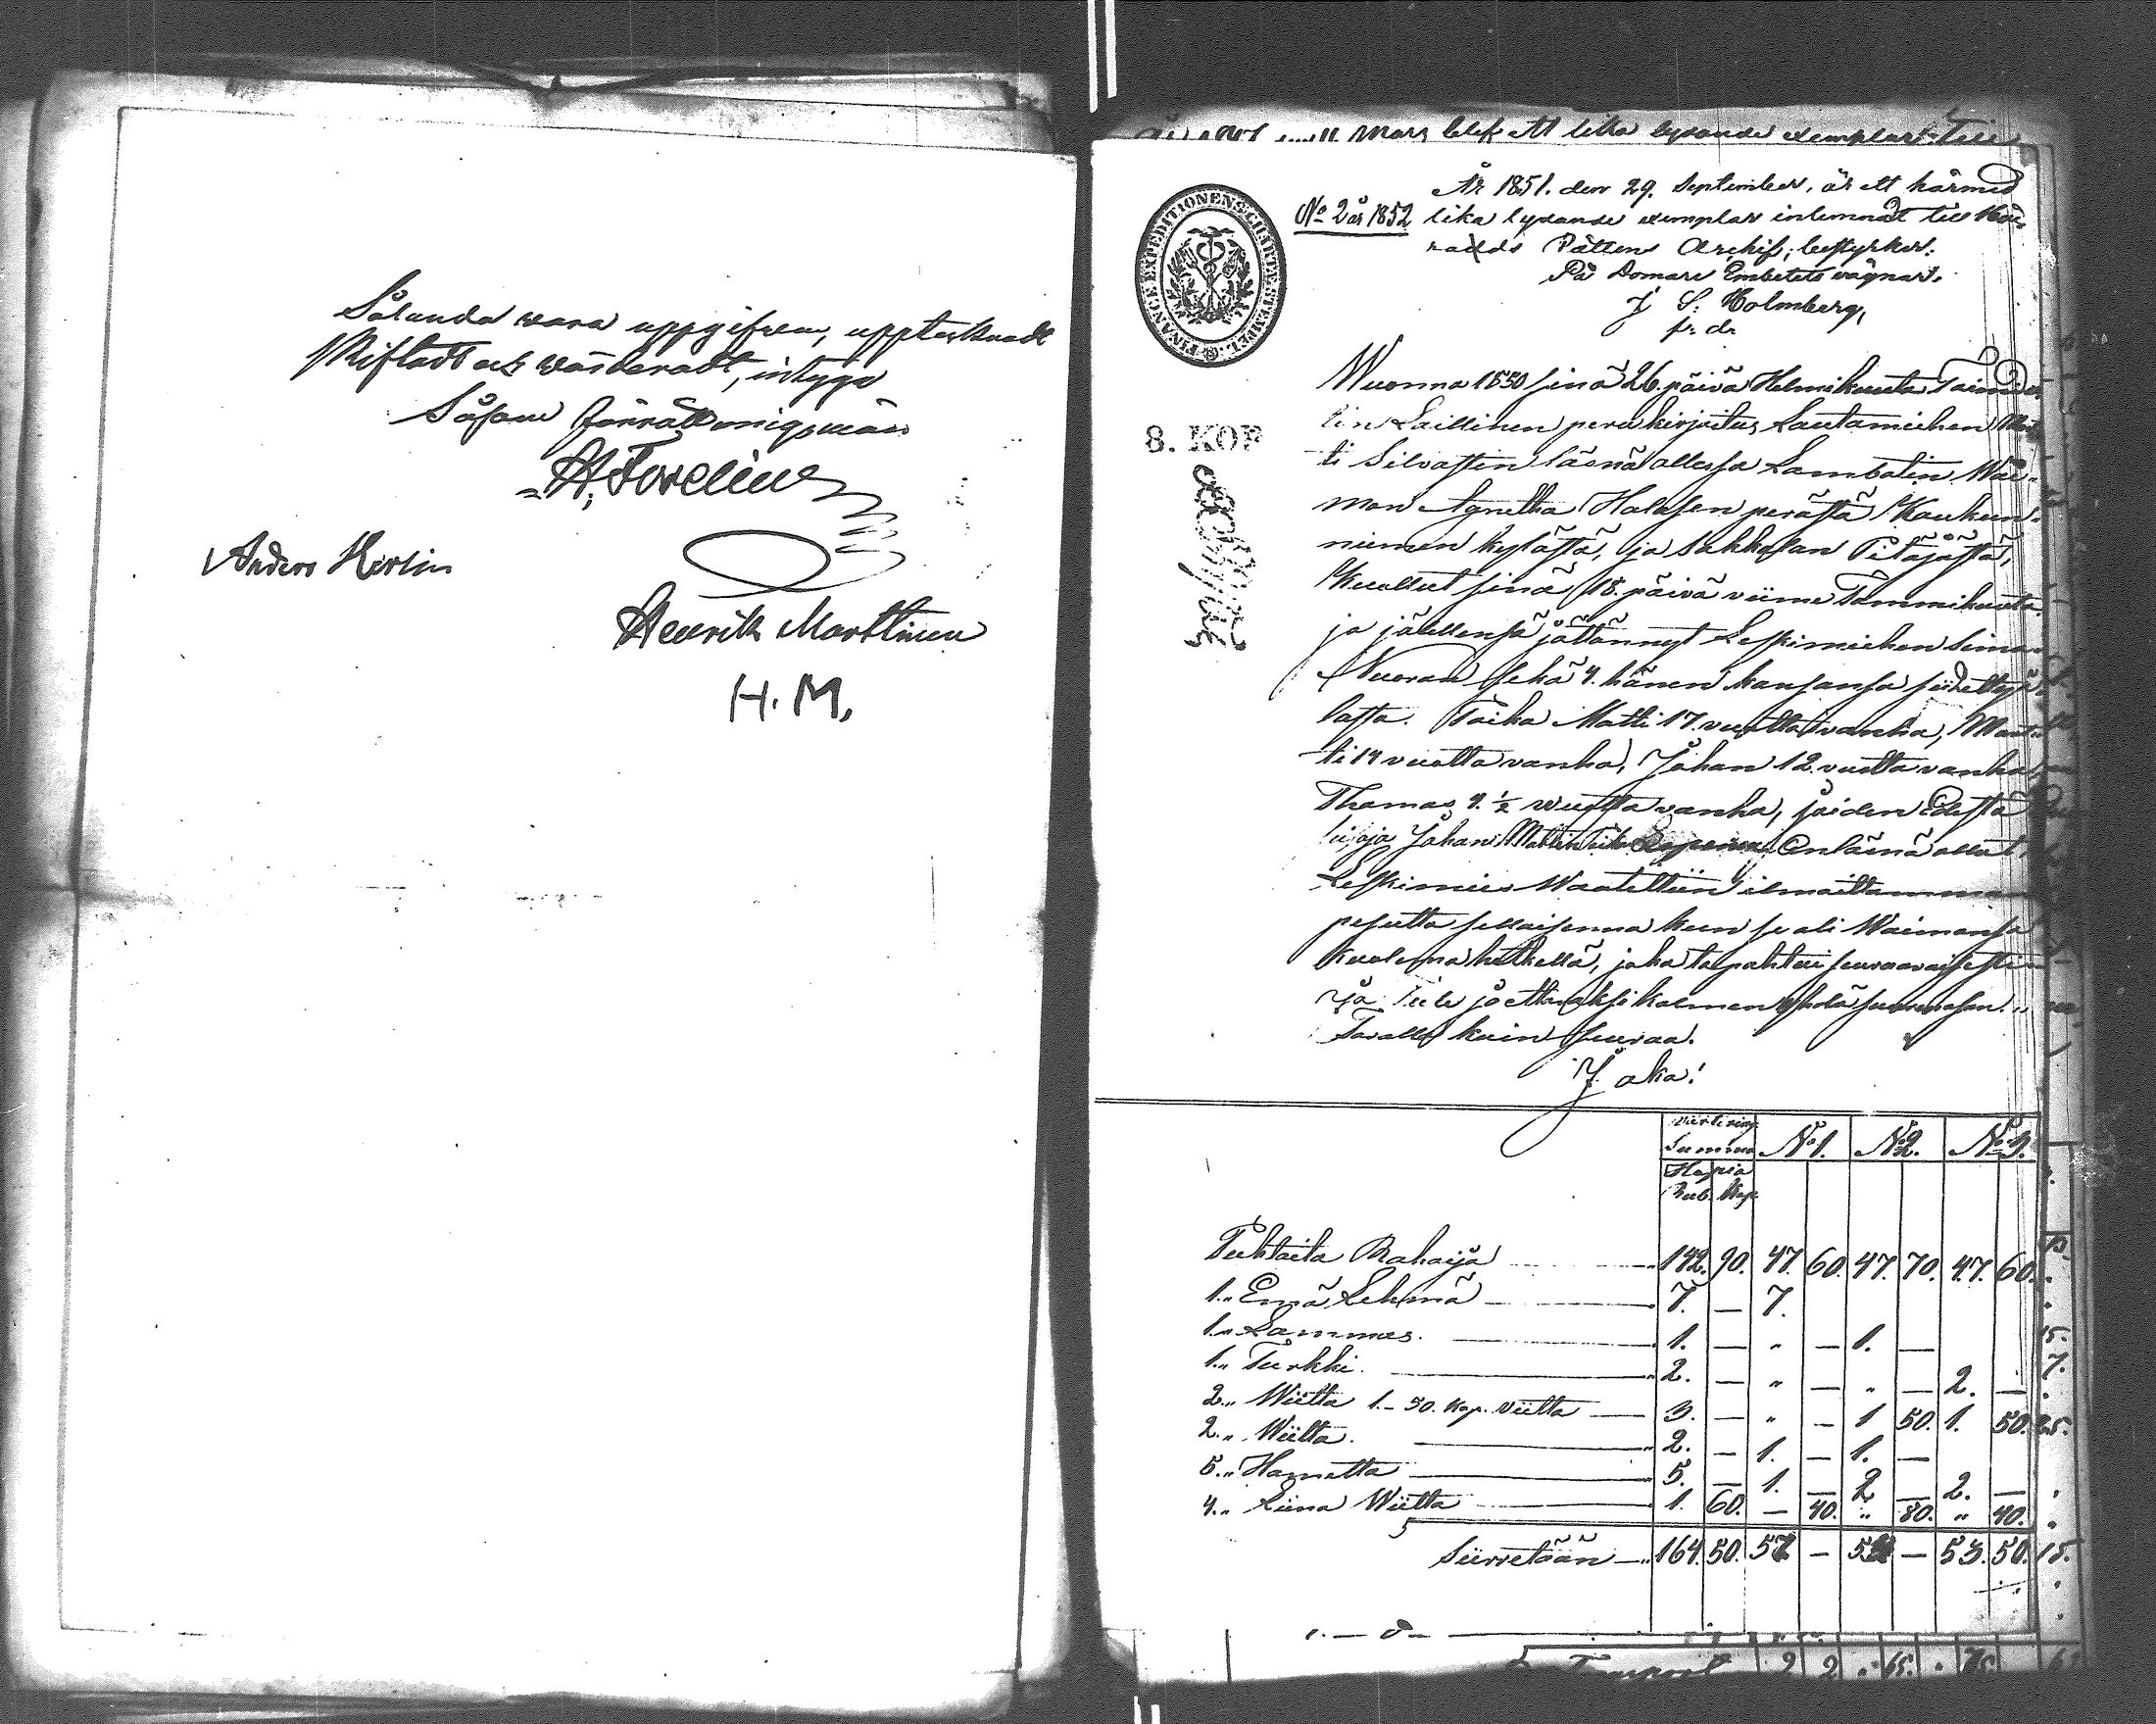 Sålunda vara uppgifvew, uppteknadt
skiftadt och värderadt, intyga
Såsom förrättningsmän
A. Forelius
Anders Hirlin
Henrik Marttinen
H. M.
Mars blef ett lika lydande exemplar
År 1851. den 29. September, är ett härmed
No 2 år 1852 lika lydande exemplar inlemnat till Hä-
radds Rättens Archif; bestyrker.
På Domare Embetets vägnar.
J S: Holmberg,
FINANCE EXPEDITIONENS CHARTÆ STEMPEL
8. KOP
Wuonna 1850 sinä 26. päivä Helmikuuta Toimitet
tin Laillinen perukirjoitus Lautamiehen Mar
ti Silvasten läsnä ollessa Lambotin Wai-
mon Agnetha Halosen perästä Kaukun-
niemen kylässä, ja Sakkolan Pitäjässä,
Kuollut sinä 18. päivä viime Tammikuuta
ja jälkensä jättännyt Leskimiehen Simon
Nuoran sekä 4. hänen kansansa siidettyjä
lasta. Poika Matti 17. vuotta vanha, Mart-
ti 14 vuotta vanha, Johan 12. vuotta vanha,
Thomas 4. ½ vuotta vanha, joiden edestä
Johan Matinpoika on läsnä ollut,
Leskimies Waatettiin ilmoittamman
pesutta sellaisenna kuin se oli Waimonsa
kuoleman hetkellä, joka tapahtui seuraavaisesti
ja tule jaettavaksi kolmen
Tavalla kuin seuraa.
Joka:
Summa No 1. No 2. No 3.
Hopia
Rub. Kop.
Puhtaita Rahoija 142. 90. 47. 60. 47. 70. 47. 60.
1. „ Emä Lehmä 7. — 7.
1. „ Lammas. 1. — „ — 1. —
1. „ Turkki. 2. — „ — „ — 2. —
2. „ Wiitta 1.– 50. Kop. viitta 3. — „ — 1 50. 1. 50.
2. „ Wiitta. 2. — 1. — 1. —
5. „ Hametta 5. — 1. — 2 — 2. —
4. „ Liina Wiitta 1. 60. — 40. „ 80. „ 40.
Siirretään 164. 50. 57 — 53 — 53. 50.
Transport